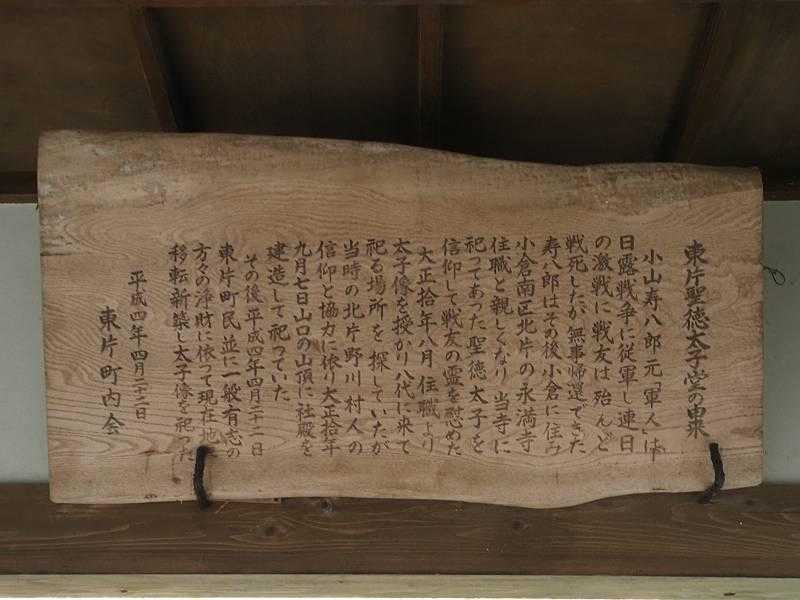 東片聖徳太子堂の由来
小山寿八郎元「軍人」は
日露戦争に従軍し連日
の激戦に戦友は殆んど
戦死したが無事帰還できた
寿八郎はその後小倉に住み
小倉南区北片の永満寺
住職と親しくなり当寺に
祀ってあった聖徳太子を
信仰して戦友の霊を慰めた
大正拾年八月住職より
太子像を授かり八代に来て
祀る場所を探していたが
当時の北片野川村人の
信仰と協力に依り大正拾年
九月七日山口の山頂に社殿を
建造して祀っていた
その後平成四年四月二十二日
東片町民並に一般有志の
方々の浄財に依って現在地
移転新築し太子像を祀った
平成四年四月二十二日
東片町内会